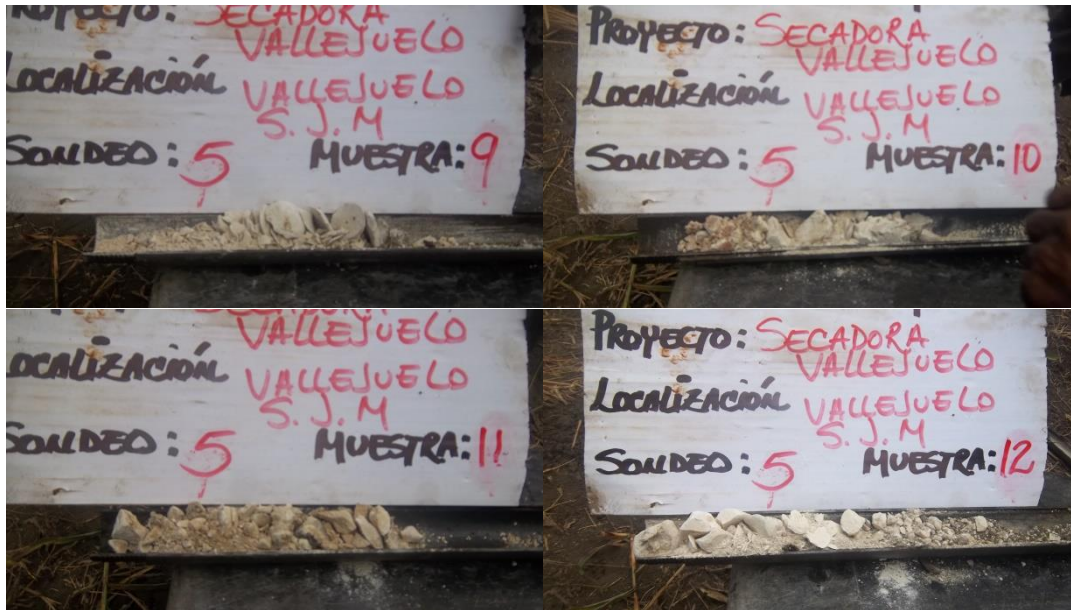 PROYECTO: SECADORA
VALLEJUELO
LOCALIZACIÓN VALLEJUELO
S. J. M
SONDEO: 5 MUESTRA: 9
PROYECTO: SECADORA
VALLEJUELO
LOCALIZACIÓN VALLEJUELO
S. J. M
SONDEO: 5 MUESTRA: 10
VALLEJUELO
LOCALIZACIÓN VALLEJUELO
S. J. M
SONDEO: 5 MUESTRA: 11
PROYECTO: SECADORA
VALLEJUELO
LOCALIZACIÓN VALLEJUELO
S. J. M
SONDEO: 5 MUESTRA: 12